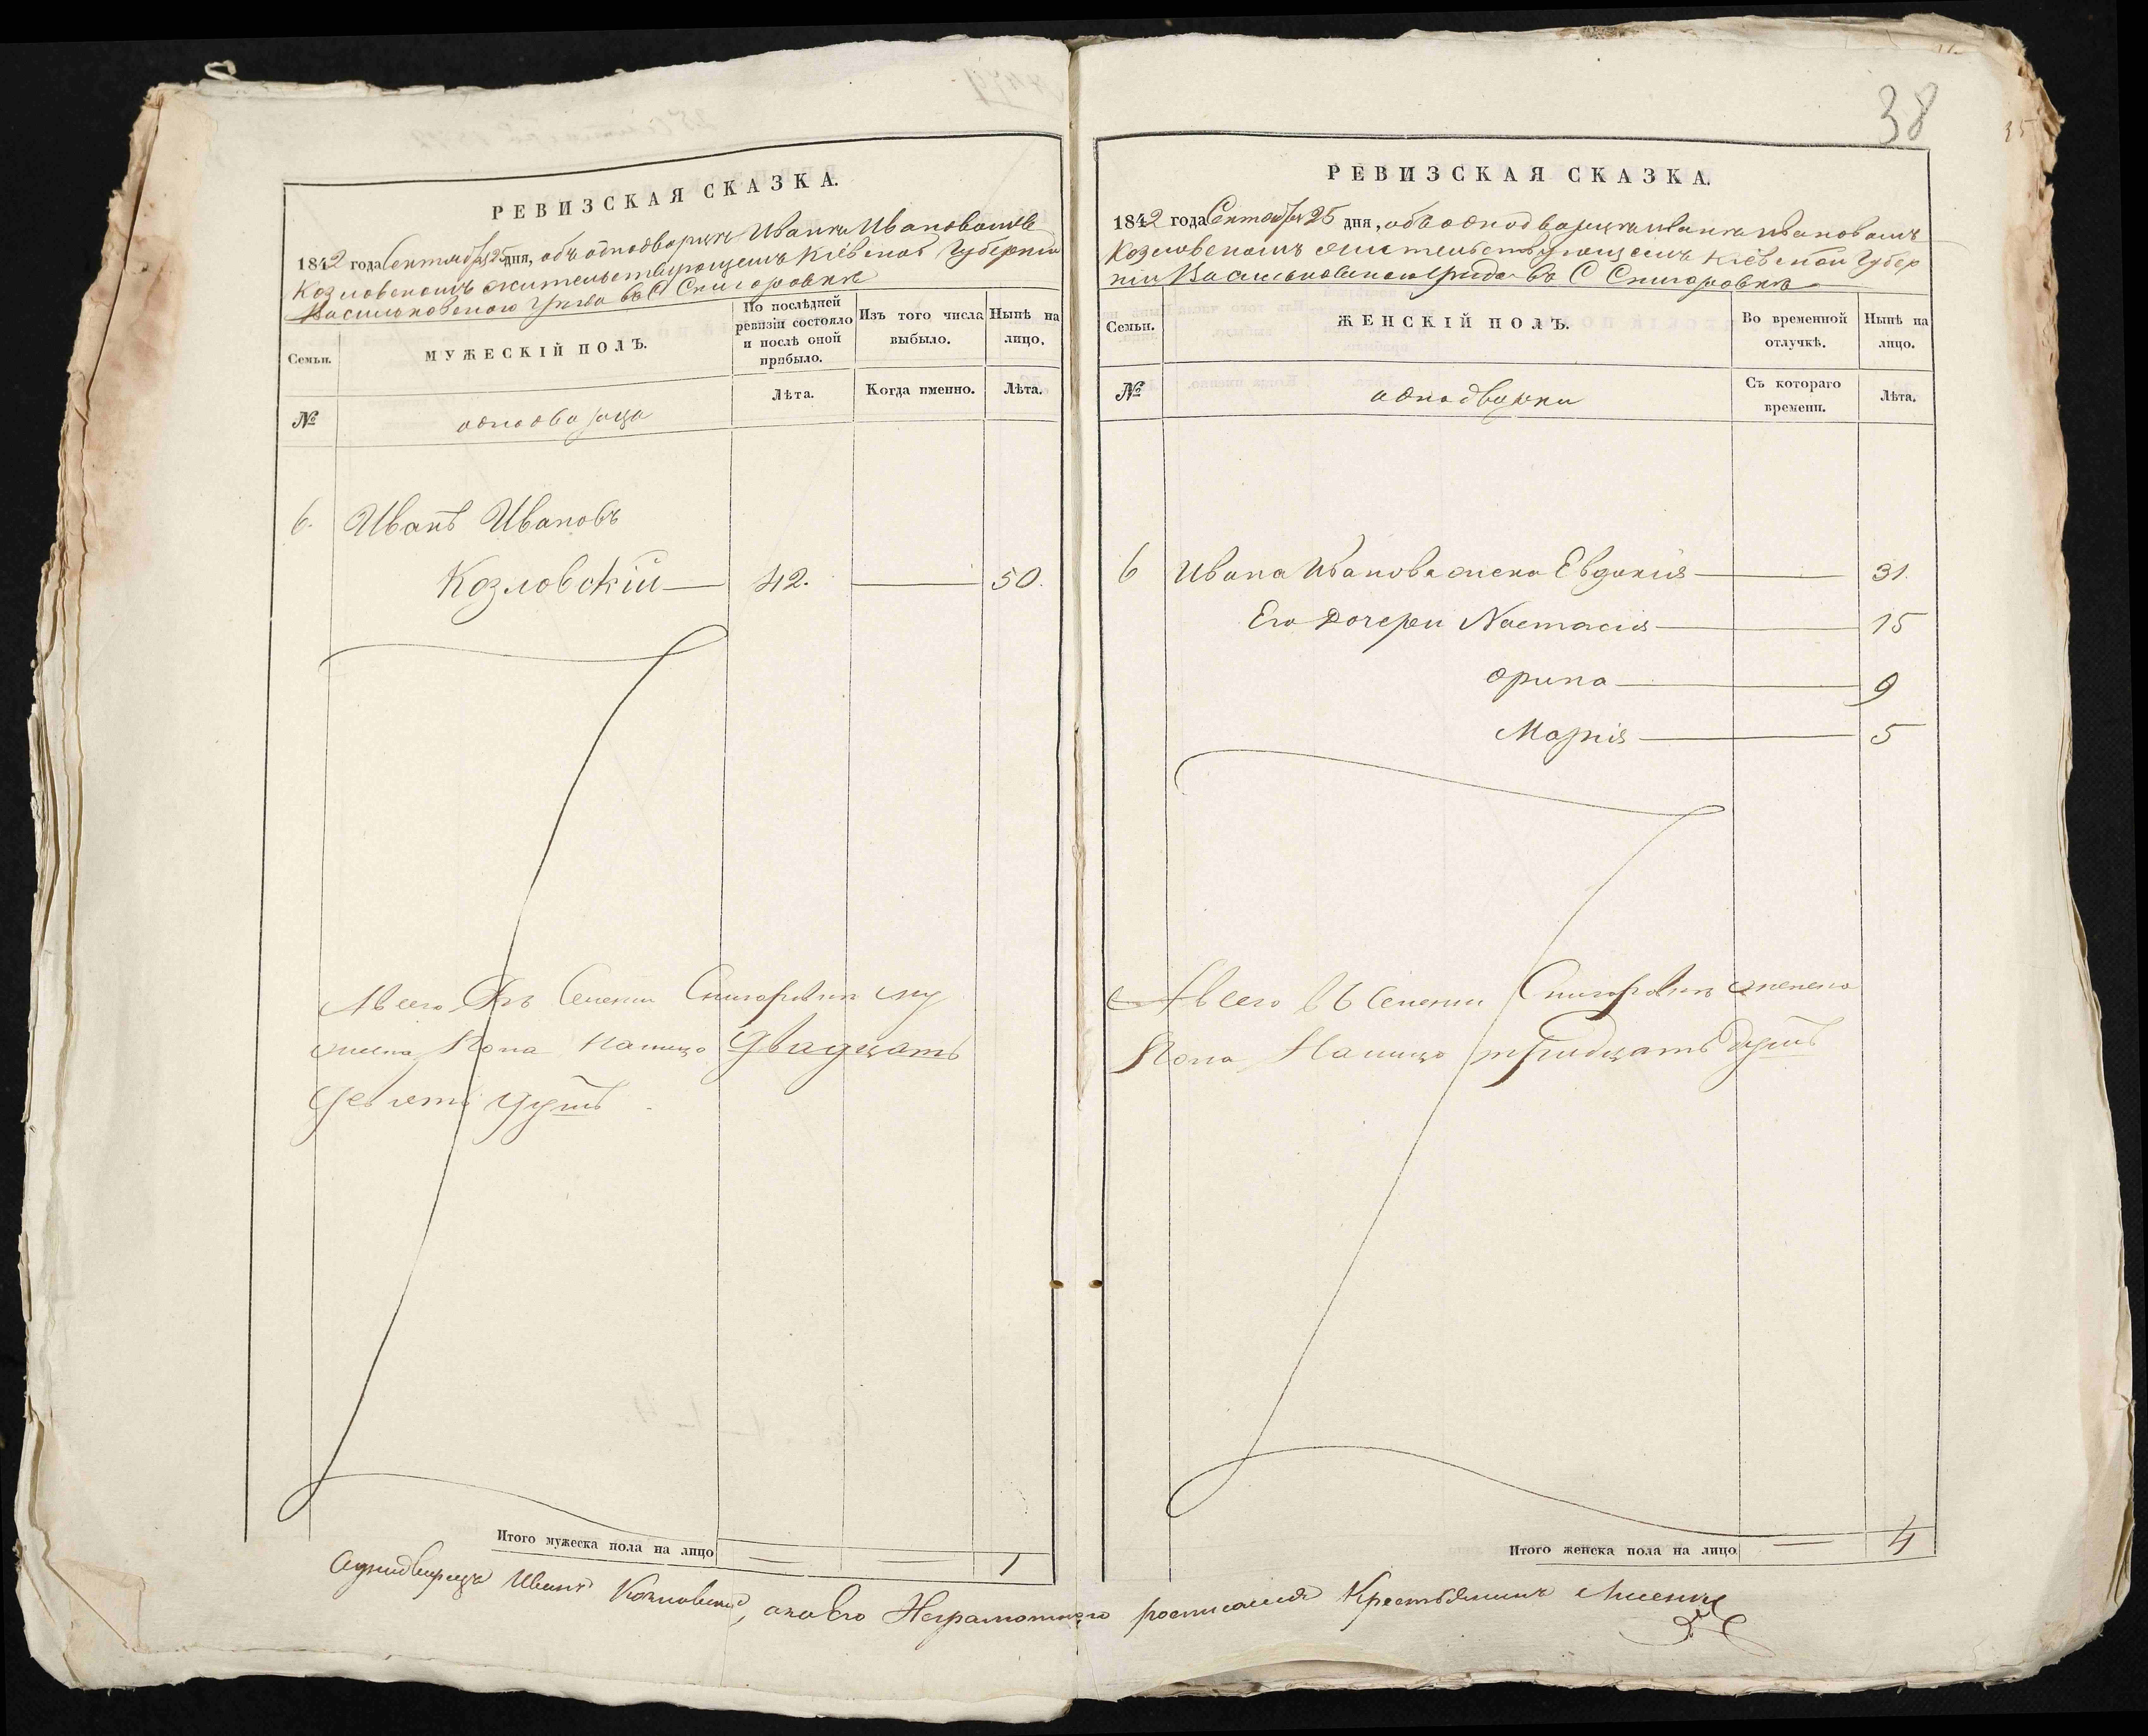 38
РЕВИЗСКАЯ СКАЗКА.
1842 года Сентября 25 дня, объ однодворцѣ Иванѣ Ивановомъ
Козловскомъ жительствующемъ Кіевской Губерніи
Васильковскаго Уезда въ С
Семьи.
МУЖЕСКІЙ ПОЛЪ.
По послѣдней
ревизіи состояло
и послѣ оной
прибыло.
Изъ того числа
выбыло.
Нынѣ на
лицо.
№
однодворца
Лѣта.
Когда именно.
Лѣта.
6. Иванъ Ивановъ
Козловскій 42. 50.
Авсего въ Селеніи му
жеска Пола Налицо Двадцать
Девять Душъ
Итого мужеска пола на лицо 1
РЕВИЗСКАЯ СКАЗКА.
1842 года Сентября 25 дня, объ однодворцѣ Иванѣ Ивановомъ
Козловскомъ жительствующемъ Кіевской Губер
ніи Васильковскаго уезда въ С
Семьи.
ЖЕНСКІЙ ПОЛЪ.
Во временной
отлучкѣ.
Нынѣ на
лицо.
№
однодворки
Съ котораго
времени.
Лѣта.
6 Ивана Иванова жена Евдокия 31.
Его Дочери Настасия 15
Орина 9
Марія 5
Авсего въ Селеніи женска
Пола Налицо тридцать Душъ
Итого женска пола на лицо 4
Аднодворецъ Иванъ Козловский, а Неграмотного росписался Крестьянинъ